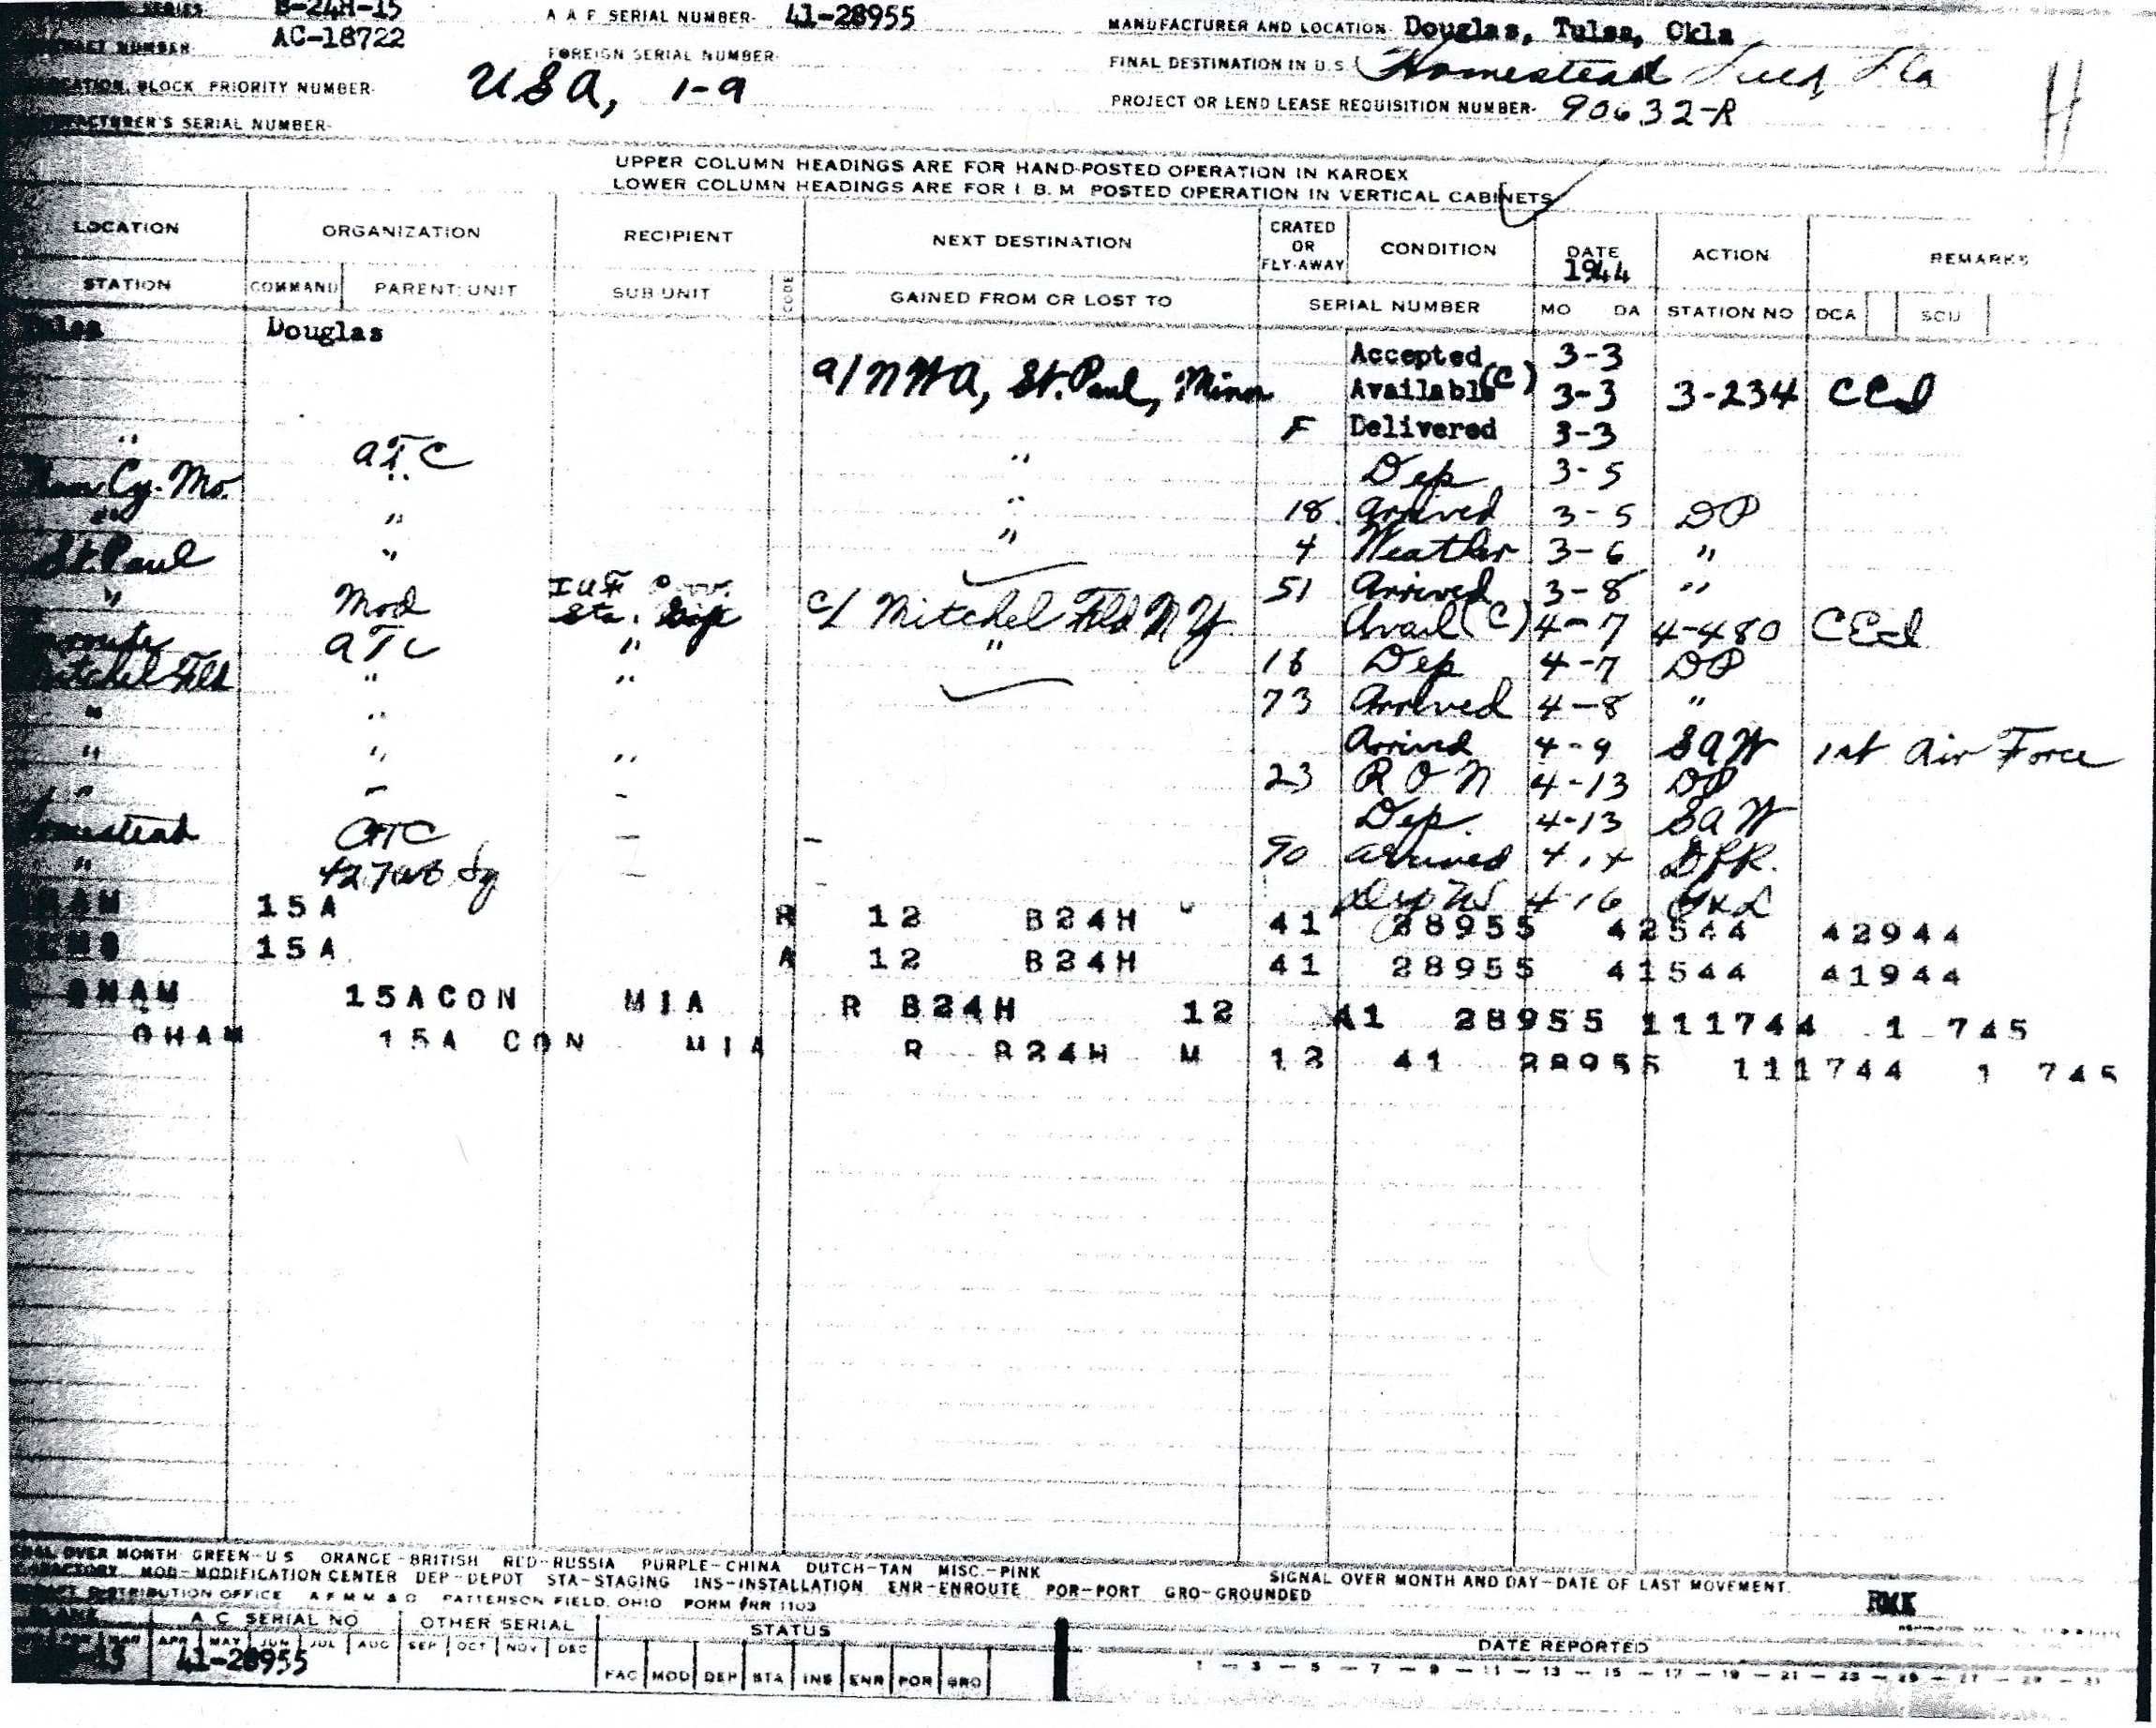 SERIES B-24H-15 A A F SERIAL NUMBER- 41-28955 MANUFACTURER AND LOCATION- Douglas, Tulsa, Okla
NUMBER AC-18722 FOREIGN SERIAL NUMBER- FINAL DESTINATION IN U.S. Homestead Field, Fla
BLOCK PRIORITY NUMBER- USA, 1-9 PROJECT OR LEND LEASE REQUISITION NUMBER- 90632-R
SERIAL NUMBER- H
UPPER COLUMN HEADINGS ARE FOR HAND-POSTED OPERATION IN KARDEX
LOWER COLUMN HEADINGS ARE FOR I. B. M POSTED OPERATION IN VERTICAL CABINETS
LOCATION ORGANIZATION RECIPIENT NEXT DESTINATION CRATED OR FLY-AWAY CONDITION DATE 1944 ACTION REMARKS
STATION COMMAND PARENT UNIT SUB UNIT CODE GAINED FROM OR LOST TO SERIAL NUMBER MO DA STATION NO DCA SCU
Tulsa Douglas
Accepted 3-3
a/ NWA, St. Paul, Minn Available (C) 3-3 3-234 CEd
F Delivered 3-3
" ATC " Dep 3-5
Cy. Mo. " " 18 Arrived 3-5 DP
" " " 4 Weather 3-6 "
St. Paul " 51 Arrived 3-8 "
" Mod Sta. c/ Mitchel Fld N Y Avail (C) 4-7 4-480 CEd
Enroute ATC " " 16 Dep 4-7 DP
Mitchel Fld " " 73 Arrived 4-8 "
" " Arrived 4-9 SAW 1st Air Force
" " " 23 R O N 4-13 DP
" " - Dep. 4-13 SAW
Homestead ATC - - 90 Arrived 4-14 DPR.
" - - 4-16
HAM 15A R 12 B24H 41 28955 42544 42944
15A A 12 B24H 41 28955 41544 41944
GHAM 15ACON MIA R B24H 12 41 28955 111744 1 745
GHAM 15A CON MIA R B24H M 12 41 28955 111744 1 745
OVER MONTH GREEN-U S ORANGE-BRITISH RED-RUSSIA PURPLE-CHINA DUTCH-TAN MISC.-PINK
FACTORY MOD-MODIFICATION CENTER DEP-DEPOT STA-STAGING INS-INSTALLATION ENR-ENROUTE POR-PORT GRO-GROUNDED SIGNAL OVER MONTH AND DAY-DATE OF LAST MOVEMENT.
DISTRIBUTION OFFICE PATTERSON FIELD, OHIO FORM #RR 1103 RMK
A.C. SERIAL NO OTHER SERIAL STATUS
APR MAY JUN JUL AUG SEP OCT NOV DEC DATE REPORTED
41-28955 FAC MOD DEP STA INS ENR POR GRO 1 - 3 - 5 - 7 - 9 - 11 - 13 - 15 - 17 - 19 - 21 - 23 - 25 - 27 - 29 - 31